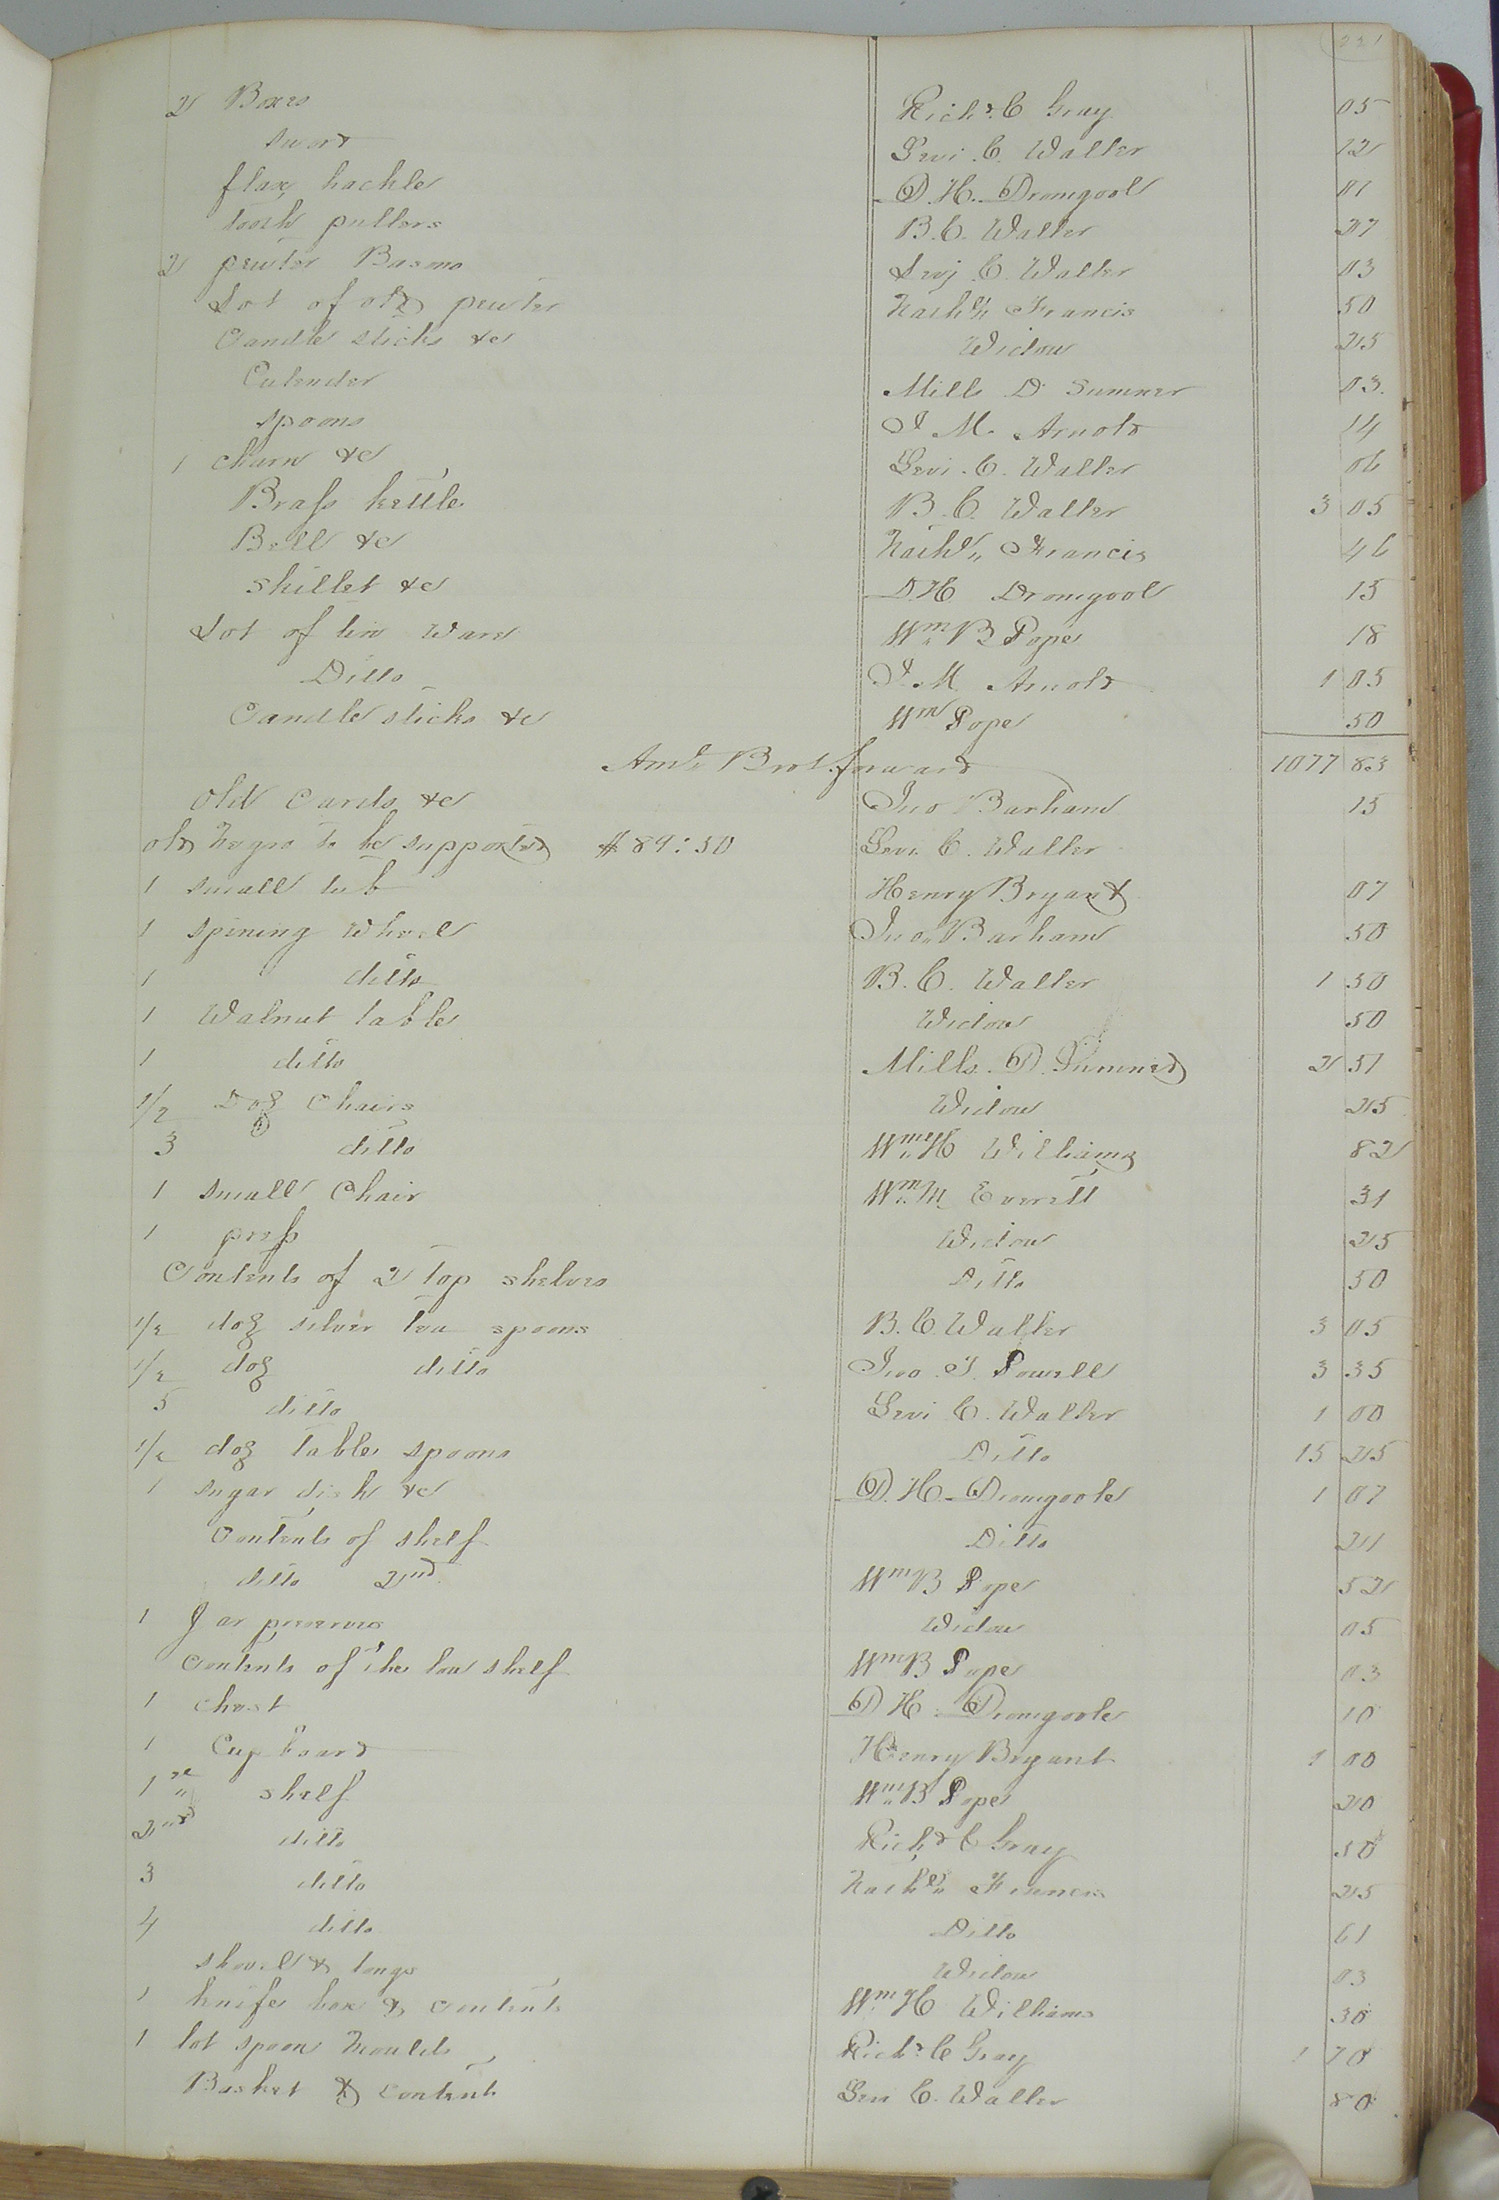 221
2 Boxes Richd. C Gray 05
sword Levi C. Waller 12
flax hackle D. H. Dromgool 01
tooth pullers B. C. Waller 27
2 pewter Basons Levi C. Waller 03
Lot of old pewter Nathl. Francis 50
Candle sticks &c Widow 25
Culender Mills D Sumner 03.
spoons J M. Arnold 14
1 churn &c Levi C. Waller 06
Brass kettle B. C. Waller 3 05
Bell &c Nathl. Francis 46
skillet &c D. H Dromgool 15
Lot of tin Ware Wm. B Pope 18
Ditto J. M. Arnold 1 05
Candle sticks &c Wm Pope 50
Amt. Brot. forward 1077 83
old Cards &c Jno Barham 15
old Negro to be supported $ 89:50 Levi C. Waller
1 small tub Henry Bryant 07
1 spining wheel Jno. Barham 50
1 ditto B. C. Waller 1 50
1 Walnut table Widow 50
1 ditto Mills. D. Sumner 2 51
1/2 Doz Chairs Widow 25
3 ditto Wm. H Williams 82
1 small Chair Wm. M Everett 31
1 press Widow 25
Contents of 2 top shelves Ditto 50
1/2 doz silver tea spoons B. C. Waller 3 05
1/2 doz ditto Jno. T. Powell 3 35
5 ditto Levi C. Waller 1 00
1/2 doz table spoons Ditto 15 25
1 sugar dish &c D. H. Dromgoole 1 07
Contents of shelf Ditto 21
ditto 2nd Wm B Pope 52
1 Jar preserves Widow 05
Contents of the low shelf Wm B Pope 03
1 chest D H. Dromgoole 10
1 Cupboard Henry Bryant 1 00
1st shelf Wm. B Pope 20
2nd ditto Richd C Gray 50
3 ditto Nathl. Francis 25
4 ditto Ditto 61
shovel & tongs Widow 03
1 knife box & contents Wm. H Williams 30
1 lot spoon moulds Richd. C Gray 1 70
Basket & contents Levi C. Waller 80